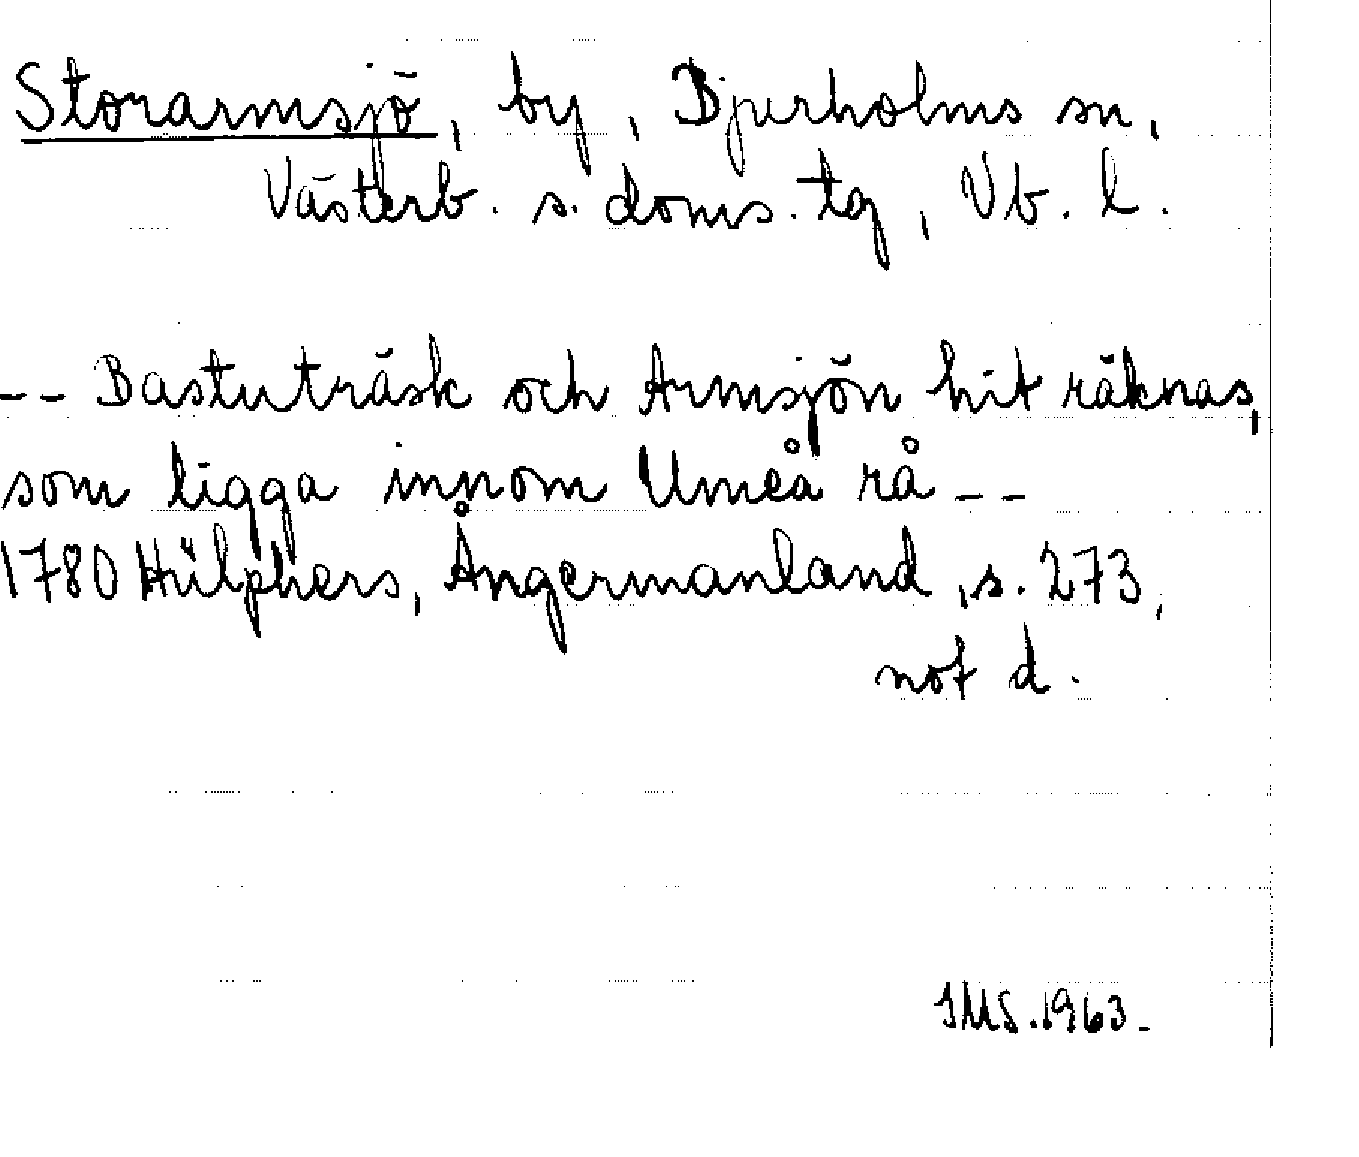 Storarmsjö, by, Bjurholms sn,
Västerb. s. doms. tg, Vb. l.
-- Bastuträsk och Armsjön hit räknas,
som ligga innom Umeå rå --
1780 Hülphers, Ångermanland, s. 273,
not d.
IMS. 1963.